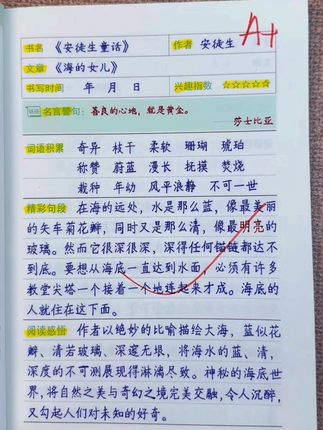 A+
书名 《安徒生童话》 作者 安徒生
文章 《海的女儿》
书写时间 年 月 日 兴趣指数 ☆☆☆☆☆
名言警句: 善良的心地,就是黄金。
——莎士比亚
词语积累 奇异 枝干 柔软 珊瑚 琥珀
称赞 蔚蓝 漫长 抚摸 焚烧
栽种 年幼 风平浪静 不可一世
精彩句段 在海的远处,水是那么蓝,像最美丽
的矢车菊花瓣,同时又是那么清,像最明亮的
玻璃。然而它很深很深,深得任何锚链都达不
到底。要想从海底一直达到水面,必须有许多
教堂尖塔一个接着一个地连起来才成。海底的
人就住在这下面。
阅读感悟 作者以绝妙的比喻描绘大海,蓝似花
瓣、清若玻璃、深邃无垠,将海水的蓝、清,
深度的不可测展现得淋漓尽致。神秘的海底世
界,将自然之美与奇幻之境完美交融,令人沉醉,
又勾起人们对未知的好奇。